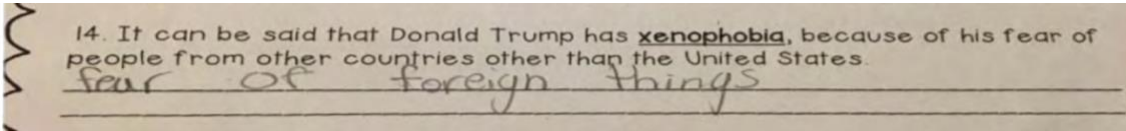 14. It can be said that Donald Trump has xenophobia, because of his fear of
people from other countries other than the United States.
fear of foreign things